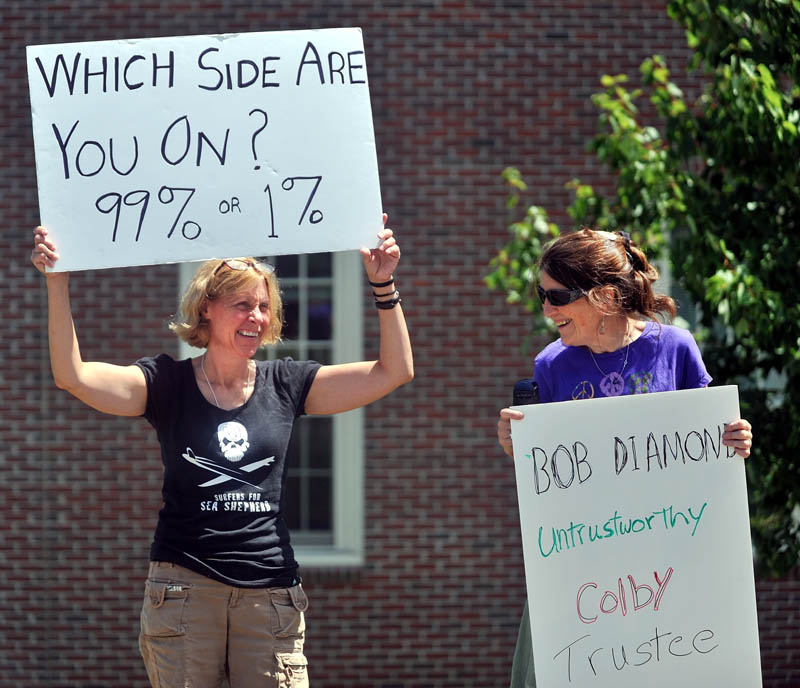 WHICH SIDE ARE
YOU ON?
99% OR 1%
SURFERS FOR
SEA SHEPHERD
BOB DIAMOND
Untrustworthy
Colby
Trustee